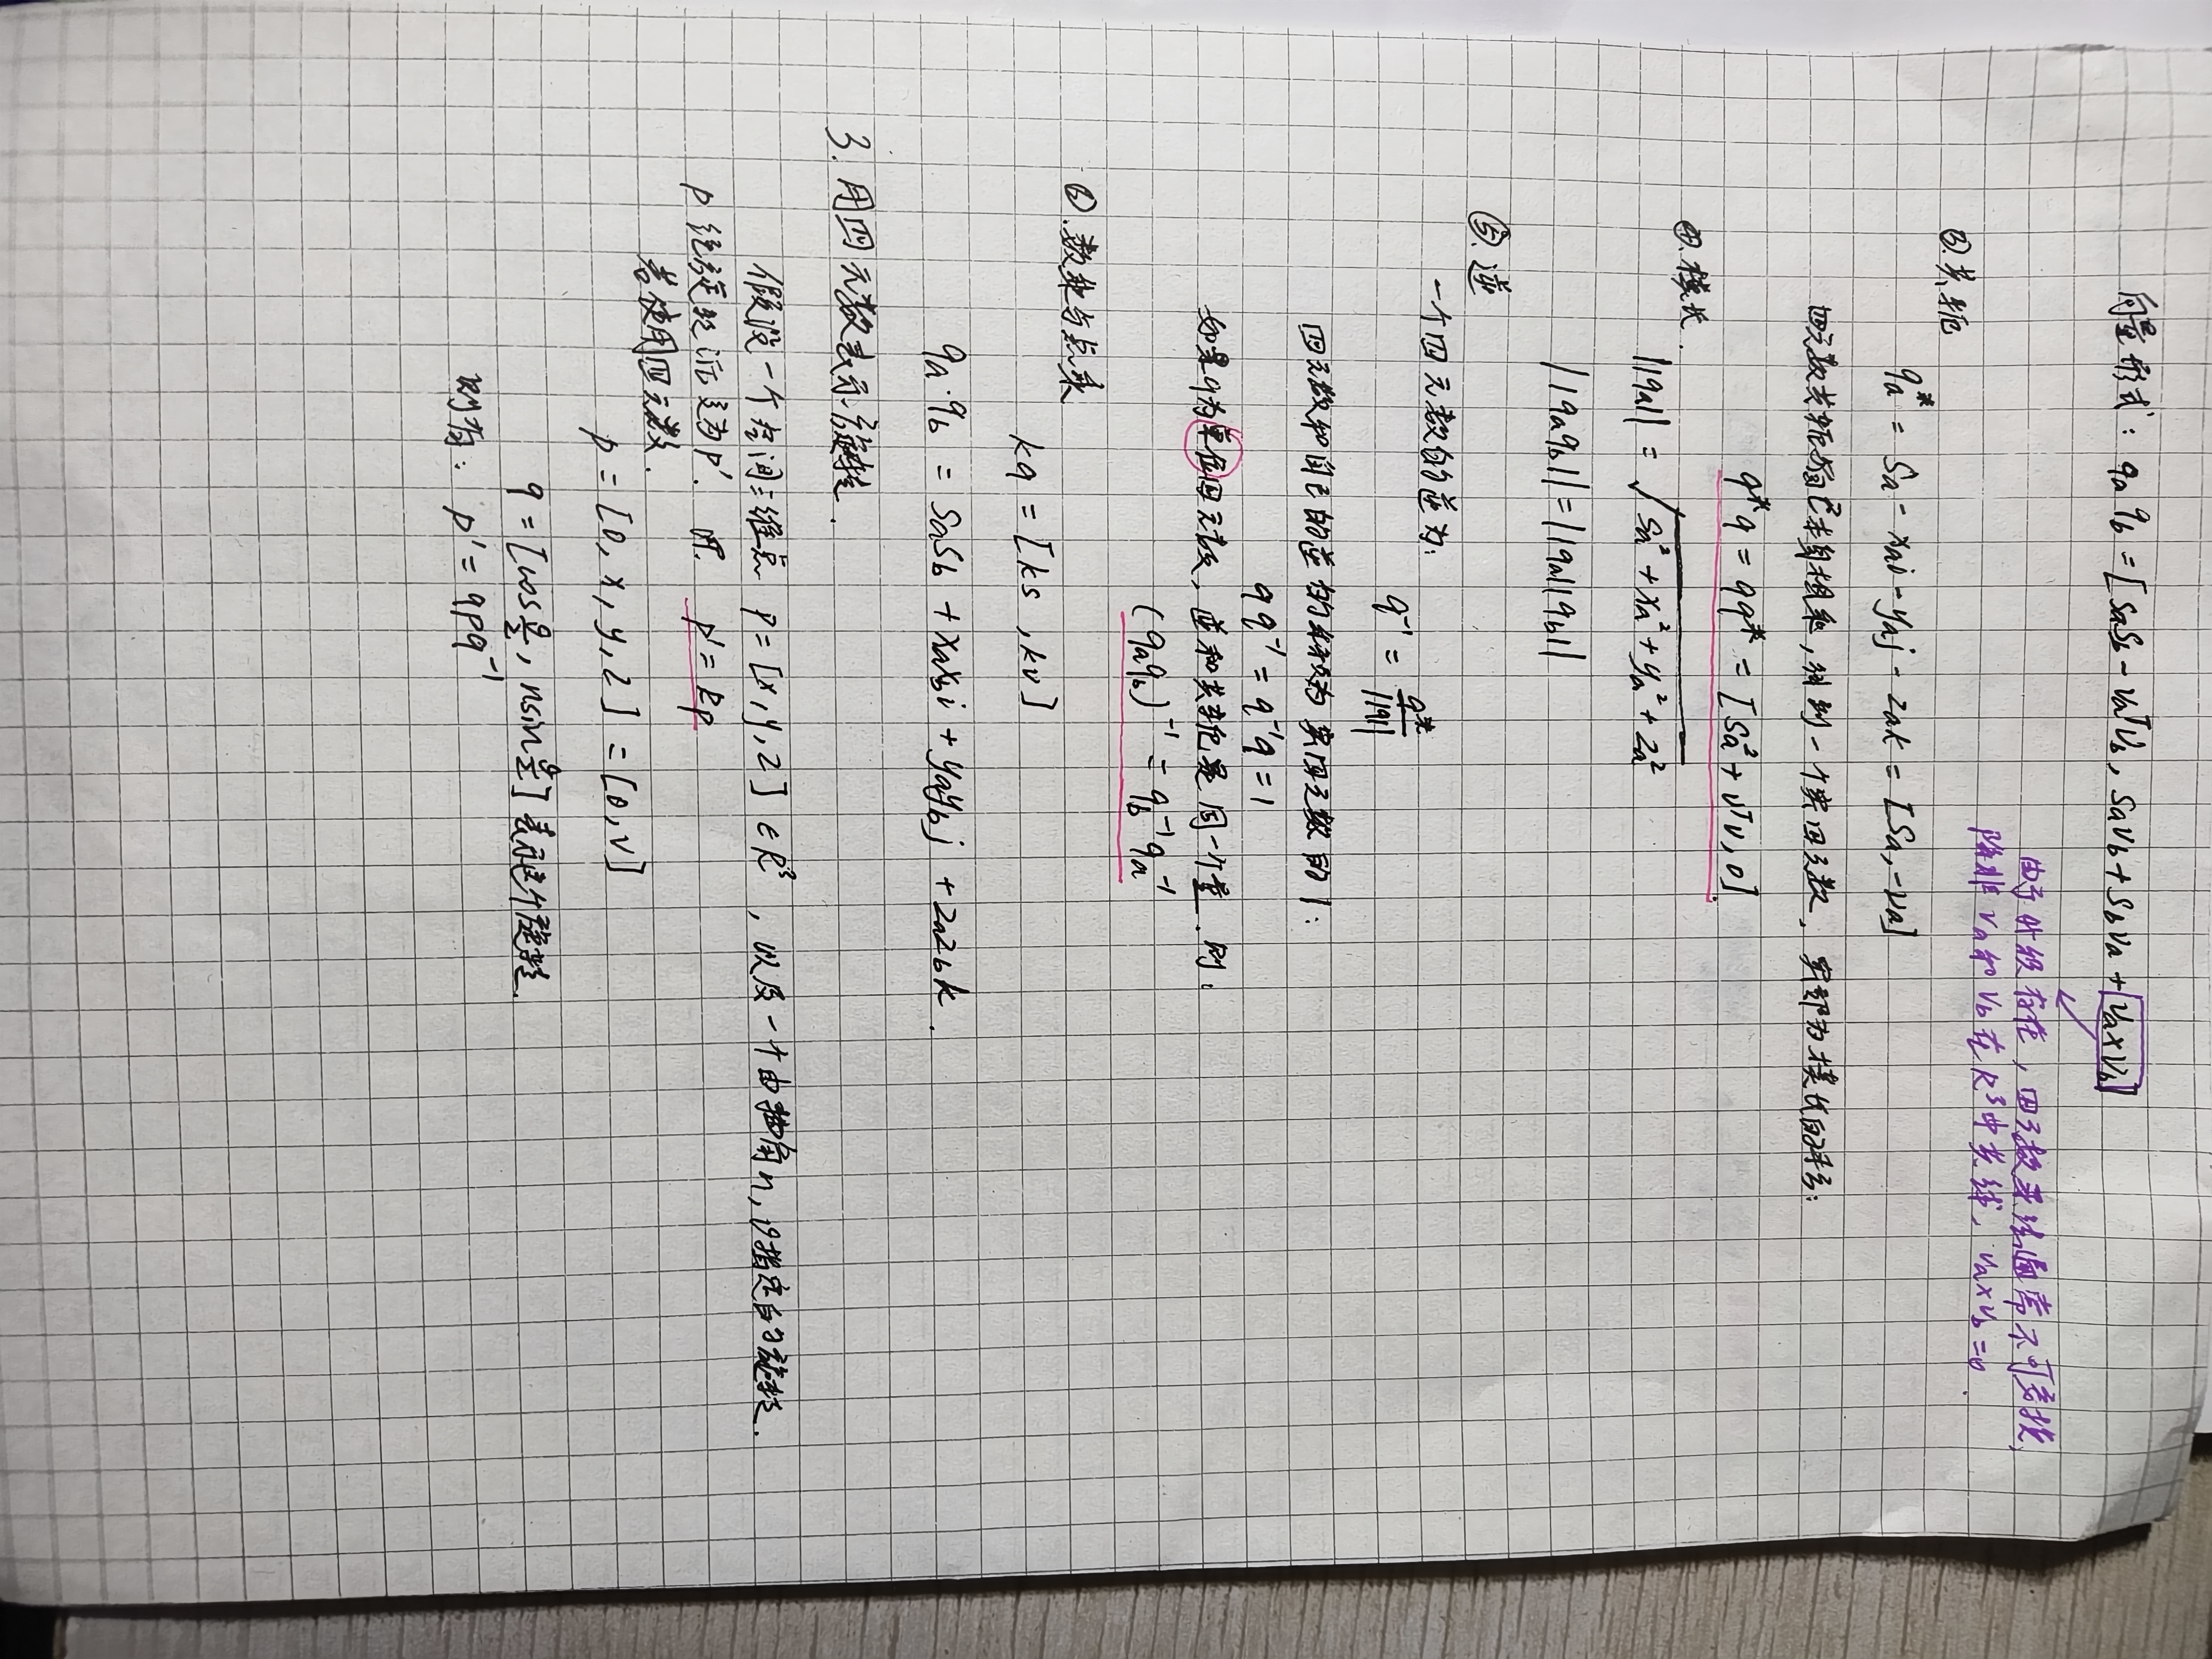 向量形式: qₐ q_b = [sₐs_b - vₐᵀv_b, sₐv_b + s_bvₐ + vₐ×v_b]
由于外积存在，四元数乘法通常不可交换，
除非 vₐ和 v_b 在 R³中共线，vₐ×v_b = 0.
③.共轭
qₐ* = sₐ - xₐi - yₐj - zₐk = [sₐ, -vₐ]
四元数共轭与自己本身相乘，得到一个实四元数，实部为模长的平方:
q*q = qq* = [sₐ² + vᵀv, 0].
④.模长.
||qₐ|| = √(sₐ² + xₐ² + yₐ² + zₐ²)
||qₐq_b|| = ||qₐ||q_b||
⑤.逆
一个四元数的逆为:
q⁻¹ = q*/||q||
四元数和自己的逆的乘积为实四元数的1:
qq⁻¹ = q⁻¹q = 1
如果q为单位四元数，逆和共轭是同一个量.则:
(qₐq_b)⁻¹ = q_b⁻¹qₐ⁻¹
⑥.数乘与点乘
kq = [ks, kv]
qₐ·q_b = sₐs_b + xₐx_bi + yₐy_bj + zₐz_bk.
3. 用四元数表示旋转.
假设一个空间三维点 P = [x, y, z] ∈ R³，以及一个由轴角n, θ指定的旋转.
p 经旋转后变为p'. 则. p' = Rp
若使用四元数.
p = [0, x, y, z] = [0, v]
q = [cos θ/2, n sin θ/2] 表示这个旋转.
则有: p' = qpq⁻¹